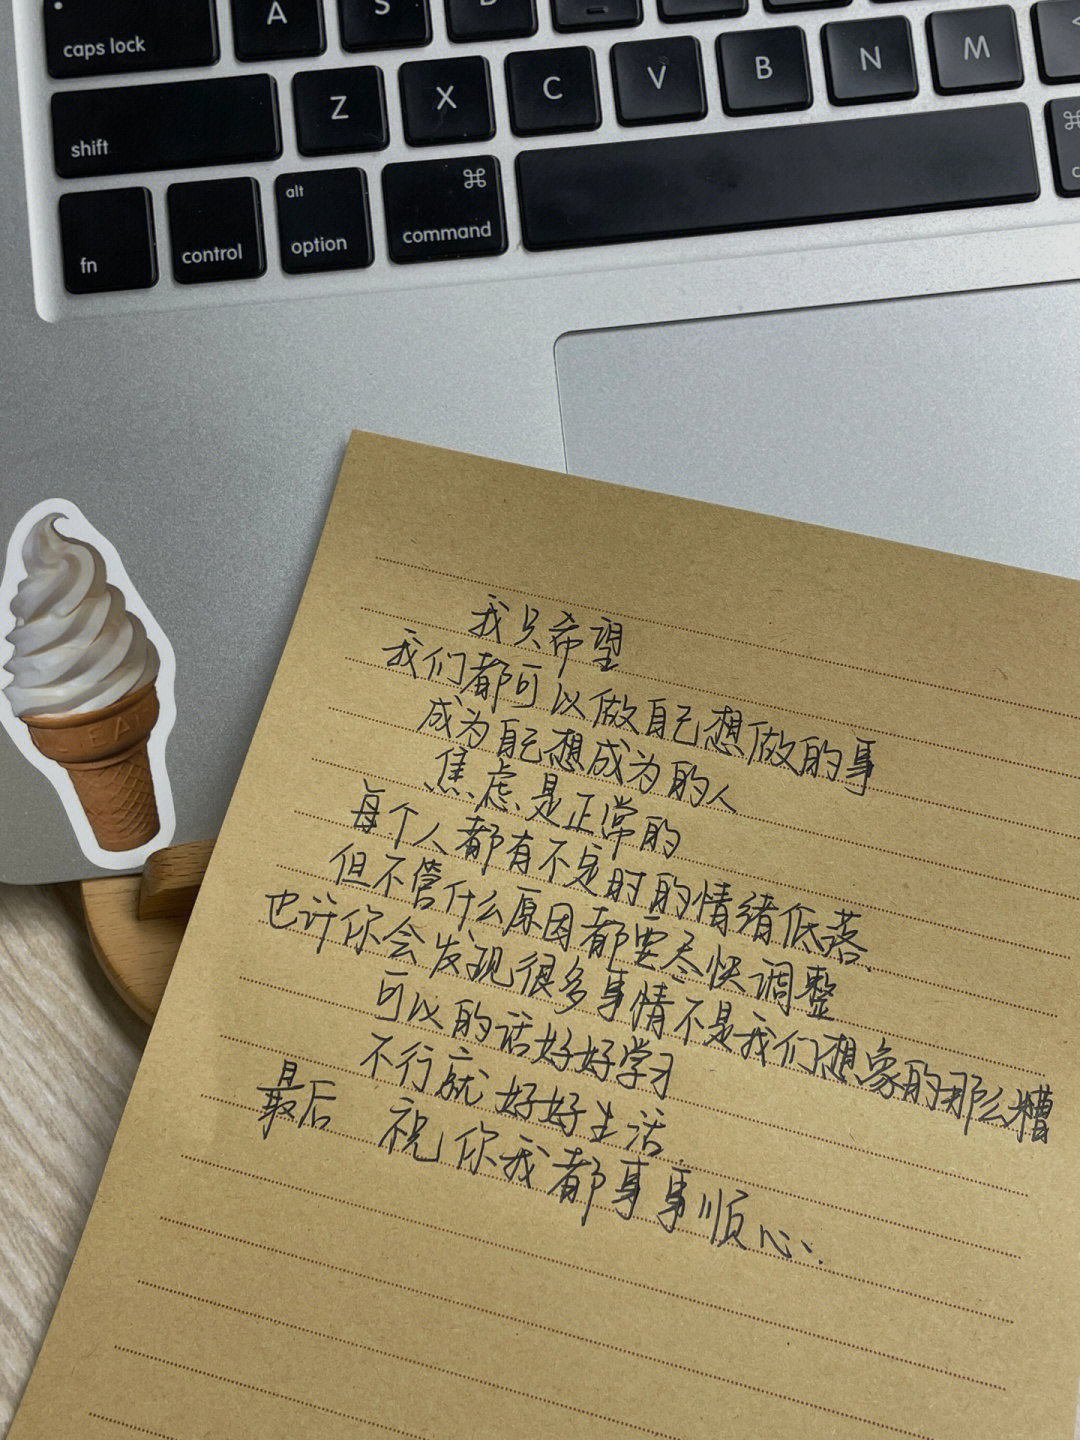 caps lock A S D
shift Z X C V B N M
fn control alt option ⌘ command ⌘
我只希望
我们都可以做自己想做的事
成为自己想成为的人
焦虑是正常的
每个人都有不定时的情绪低落
但不管什么原因都要尽快调整
也许你会发现很多事情不是我们想象的那么糟
可以的话好好学习
不行就好好生活
最后 祝你我都事事顺心..